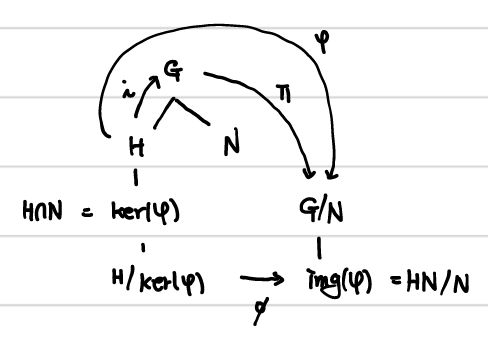 φ
i G
π
H N
H∩N = ker(φ) G/N
H/ker(φ) → img(φ) = HN/N
ϕ